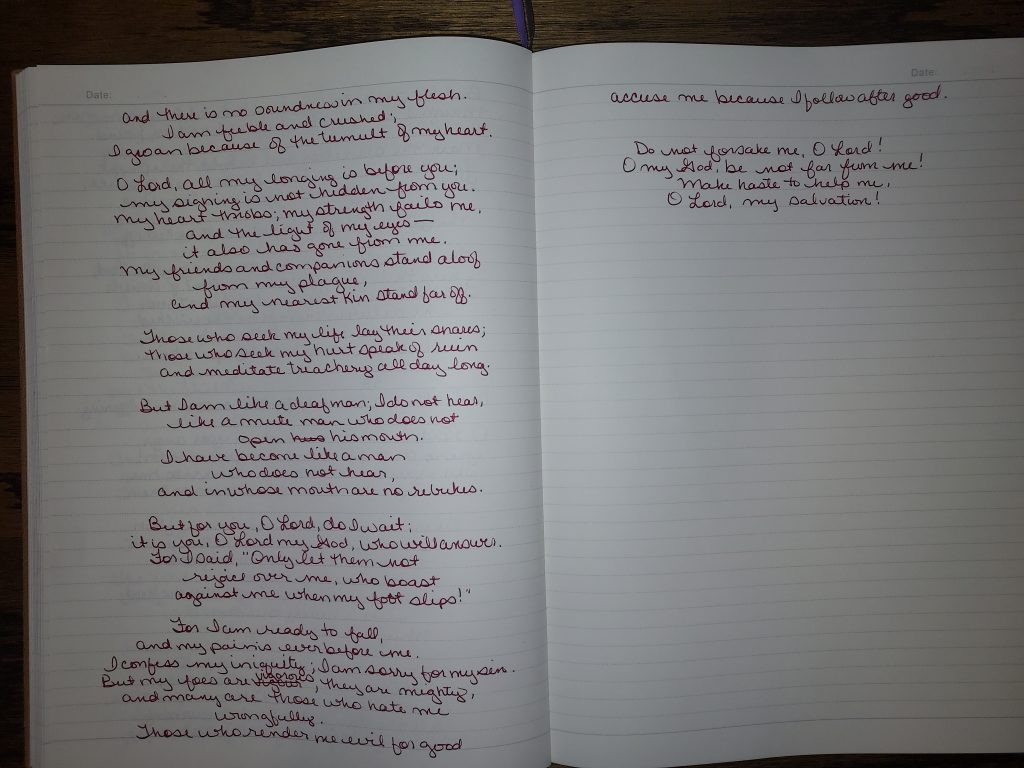 Date:
and there is no soundness in my flesh.
I am feeble and crushed;
I groan because of the tumult of my heart.
O Lord, all my longing is before you;
my sighing is not hidden from you.
My heart throbs; my strength fails me,
and the light of my eyes—
it also has gone from me.
My friends and companions stand aloof
from my plague,
and my nearest kin stand far off.
Those who seek my life lay their snares;
those who seek my hurt speak of ruin
and meditate treachery all day long.
But I am like a deaf man; I do not hear,
like a mute man who does not
open his mouth.
I have become like a man
who does not hear,
and in whose mouth are no rebukes.
But for you, O Lord, do I wait;
it is you, O Lord my God, who will answer.
For I said, "Only let them not
rejoice over me, who boast
against me when my foot slips!"
For I am ready to fall,
and my pain is ever before me.
I confess my iniquity; I am sorry for my sin.
But my foes are vigorous, they are mighty,
and many are those who hate me
wrongfully.
Those who render me evil for good
Date:
accuse me because I follow after good.
Do not forsake me, O Lord!
O my God, be not far from me!
Make haste to help me,
O Lord, my salvation!